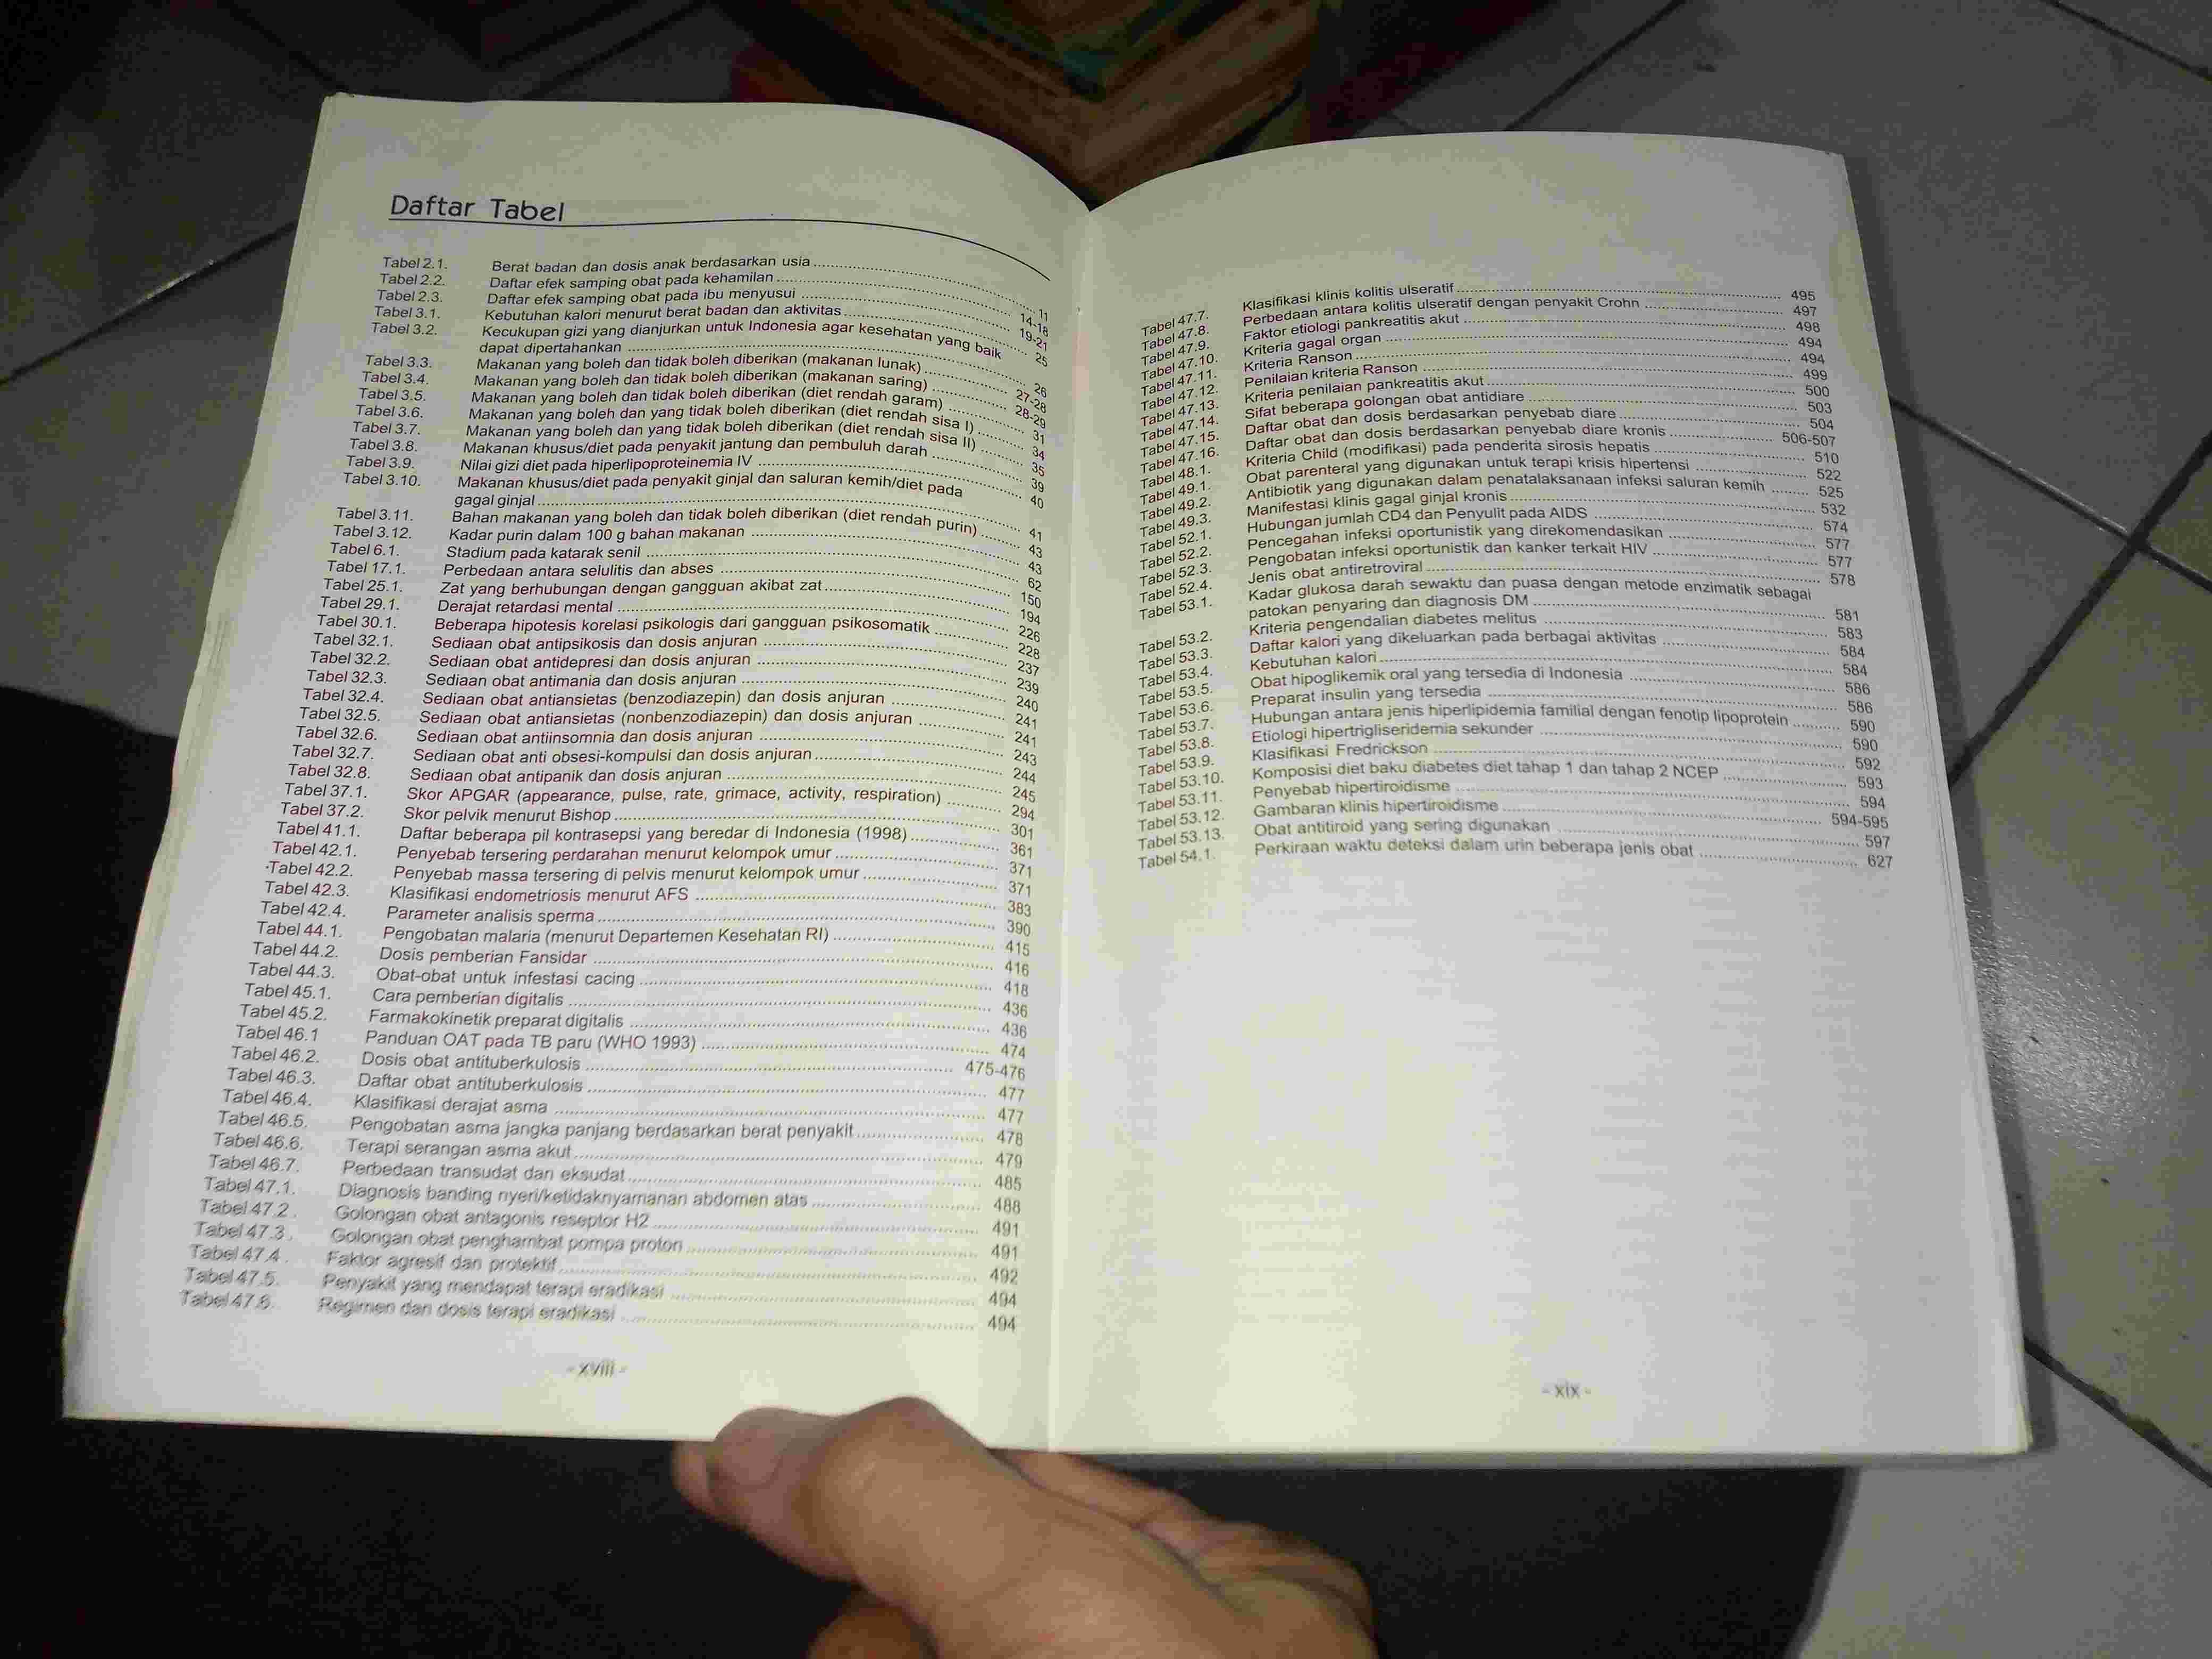 Daftar Tabel
Tabel 2.1. Berat badan dan dosis anak berdasarkan usia 11
Tabel 2.2. Daftar efek samping obat pada kehamilan 14-18
Tabel 2.3. Daftar efek samping obat pada ibu menyusui 19-21
Tabel 3.1. Kebutuhan kalori menurut berat badan dan aktivitas 25
Tabel 3.2. Kecukupan gizi yang dianjurkan untuk Indonesia agar kesehatan yang baik
dapat dipertahankan 26
Tabel 3.3. Makanan yang boleh dan tidak boleh diberikan (makanan lunak) 27-28
Tabel 3.4. Makanan yang boleh dan tidak boleh diberikan (makanan saring) 28-29
Tabel 3.5. Makanan yang boleh dan tidak boleh diberikan (diet rendah garam) 31
Tabel 3.6. Makanan yang boleh dan yang tidak boleh diberikan (diet rendah sisa I) 34
Tabel 3.7. Makanan yang boleh dan yang tidak boleh diberikan (diet rendah sisa II) 35
Tabel 3.8. Makanan khusus/diet pada penyakit jantung dan pembuluh darah 39
Tabel 3.9. Nilai gizi diet pada hiperlipoproteinemia IV 40
Tabel 3.10. Makanan khusus/diet pada penyakit ginjal dan saluran kemih/diet pada
gagal ginjal 41
Tabel 3.11. Bahan makanan yang boleh dan tidak boleh diberikan (diet rendah purin) 43
Tabel 3.12. Kadar purin dalam 100 g bahan makanan 43
Tabel 6.1. Stadium pada katarak senil 62
Tabel 17.1. Perbedaan antara selulitis dan abses 150
Tabel 25.1. Zat yang berhubungan dengan gangguan akibat zat 194
Tabel 29.1. Derajat retardasi mental 226
Tabel 30.1. Beberapa hipotesis korelasi psikologis dari gangguan psikosomatik 228
Tabel 32.1. Sediaan obat antipsikosis dan dosis anjuran 237
Tabel 32.2. Sediaan obat antidepresi dan dosis anjuran 239
Tabel 32.3. Sediaan obat antimania dan dosis anjuran 240
Tabel 32.4. Sediaan obat antiansietas (benzodiazepin) dan dosis anjuran 241
Tabel 32.5. Sediaan obat antiansietas (nonbenzodiazepin) dan dosis anjuran 241
Tabel 32.6. Sediaan obat antiinsomnia dan dosis anjuran 243
Tabel 32.7. Sediaan obat anti obsesi-kompulsi dan dosis anjuran 244
Tabel 32.8. Sediaan obat antipanik dan dosis anjuran 245
Tabel 37.1. Skor APGAR (appearance, pulse, rate, grimace, activity, respiration) 294
Tabel 37.2. Skor pelvik menurut Bishop 301
Tabel 41.1. Daftar beberapa pil kontrasepsi yang beredar di Indonesia (1998) 361
Tabel 42.1. Penyebab tersering perdarahan menurut kelompok umur 371
Tabel 42.2. Penyebab massa tersering di pelvis menurut kelompok umur 371
Tabel 42.3. Klasifikasi endometriosis menurut AFS 383
Tabel 42.4. Parameter analisis sperma 390
Tabel 44.1. Pengobatan malaria (menurut Departemen Kesehatan RI) 415
Tabel 44.2. Dosis pemberian Fansidar 416
Tabel 44.3. Obat-obat untuk infestasi cacing 418
Tabel 45.1. Cara pemberian digitalis 436
Tabel 45.2. Farmakokinetik preparat digitalis 436
Tabel 46.1 Panduan OAT pada TB paru (WHO 1993) 474
Tabel 46.2. Dosis obat antituberkulosis 475-476
Tabel 46.3. Daftar obat antituberkulosis 477
Tabel 46.4. Klasifikasi derajat asma 477
Tabel 46.5. Pengobatan asma jangka panjang berdasarkan berat penyakit 478
Tabel 46.6. Terapi serangan asma akut 479
Tabel 46.7. Perbedaan transudat dan eksudat 485
Tabel 47.1. Diagnosis banding nyeri/ketidaknyamanan abdomen atas 488
Tabel 47.2. Golongan obat antagonis reseptor H2 491
Tabel 47.3. Golongan obat penghambat pompa proton 491
Tabel 47.4. Faktor agresif dan protektif 492
Tabel 47.5. Penyakit yang mendapat terapi eradikasi 494
Tabel 47.6. Regimen dan dosis terapi eradikasi 494
- xviii -
Tabel 47.7. Klasifikasi klinis kolitis ulseratif 495
Tabel 47.8. Perbedaan antara kolitis ulseratif dengan penyakit Crohn 497
Tabel 47.9. Faktor etiologi pankreatitis akut 498
Tabel 47.10. Kriteria gagal organ 494
Tabel 47.11. Kriteria Ranson 494
Tabel 47.12. Penilaian kriteria Ranson 499
Tabel 47.13. Kriteria penilaian pankreatitis akut 500
Tabel 47.14. Sifat beberapa golongan obat antidiare 503
Tabel 47.15. Daftar obat dan dosis berdasarkan penyebab diare 504
Tabel 47.16. Daftar obat dan dosis berdasarkan penyebab diare kronis 506-507
Tabel 48.1. Kriteria Child (modifikasi) pada penderita sirosis hepatis 510
Tabel 49.1. Obat parenteral yang digunakan untuk terapi krisis hipertensi 522
Tabel 49.2. Antibiotik yang digunakan dalam penatalaksanaan infeksi saluran kemih 525
Tabel 49.3. Manifestasi klinis gagal ginjal kronis 532
Tabel 52.1. Hubungan jumlah CD4 dan Penyulit pada AIDS 574
Tabel 52.2. Pencegahan infeksi oportunistik yang direkomendasikan 577
Tabel 52.3. Pengobatan infeksi oportunistik dan kanker terkait HIV 577
Tabel 52.4. Jenis obat antiretroviral 578
Tabel 53.1. Kadar glukosa darah sewaktu dan puasa dengan metode enzimatik sebagai
patokan penyaring dan diagnosis DM 581
Tabel 53.2. Kriteria pengendalian diabetes melitus 583
Tabel 53.3. Daftar kalori yang dikeluarkan pada berbagai aktivitas 584
Tabel 53.4. Kebutuhan kalori 584
Tabel 53.5. Obat hipoglikemik oral yang tersedia di Indonesia 586
Tabel 53.6. Preparat insulin yang tersedia 586
Tabel 53.7. Hubungan antara jenis hiperlipidemia familial dengan fenotip lipoprotein 590
Tabel 53.8. Etiologi hipertrigliseridemia sekunder 590
Tabel 53.9. Klasifikasi Fredrickson 592
Tabel 53.10. Komposisi diet baku diabetes diet tahap 1 dan tahap 2 NCEP 593
Tabel 53.11. Penyebab hipertiroidisme 594
Tabel 53.12. Gambaran klinis hipertiroidisme 594-595
Tabel 53.13. Obat antitiroid yang sering digunakan 597
Tabel 54.1. Perkiraan waktu deteksi dalam urin beberapa jenis obat 627
- xix -